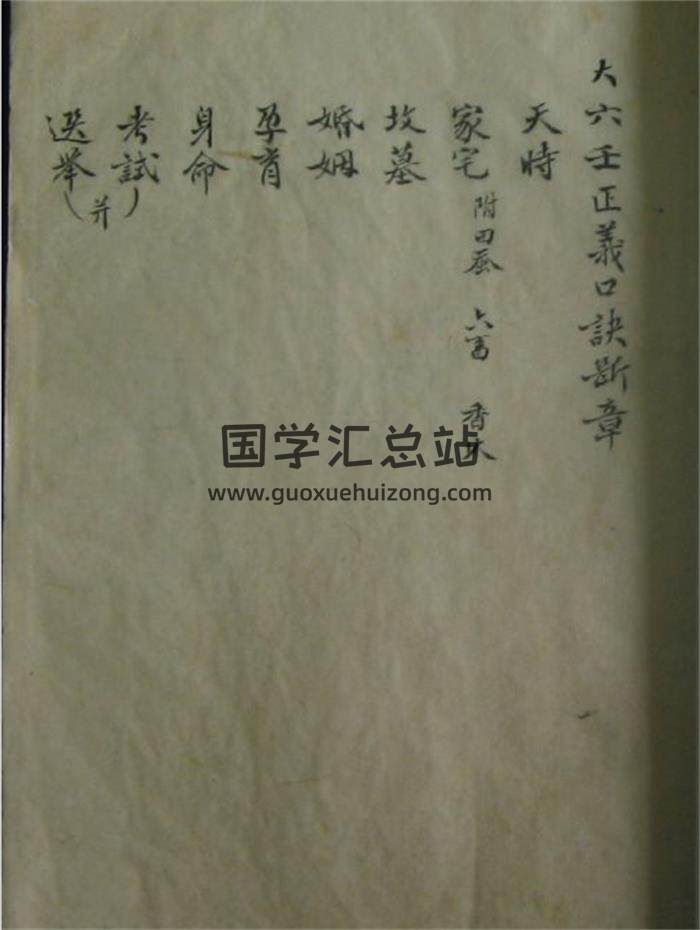 大六壬正義口訣斷章
天時
家宅 附田蚕 六畜 香火
坟墓
婚姻
孕育
身命
考試
選举(并)
国学汇总站
www.guoxuehuizong.com